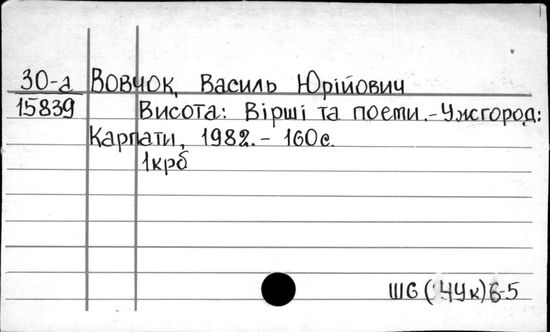 30-а Вовчок, Василь Юрійович
15839 Висота: Вірші та поєми.-Ужгород:
Карпати, 1982.- 160с.
1крб
Ш6(4Ук)6-5